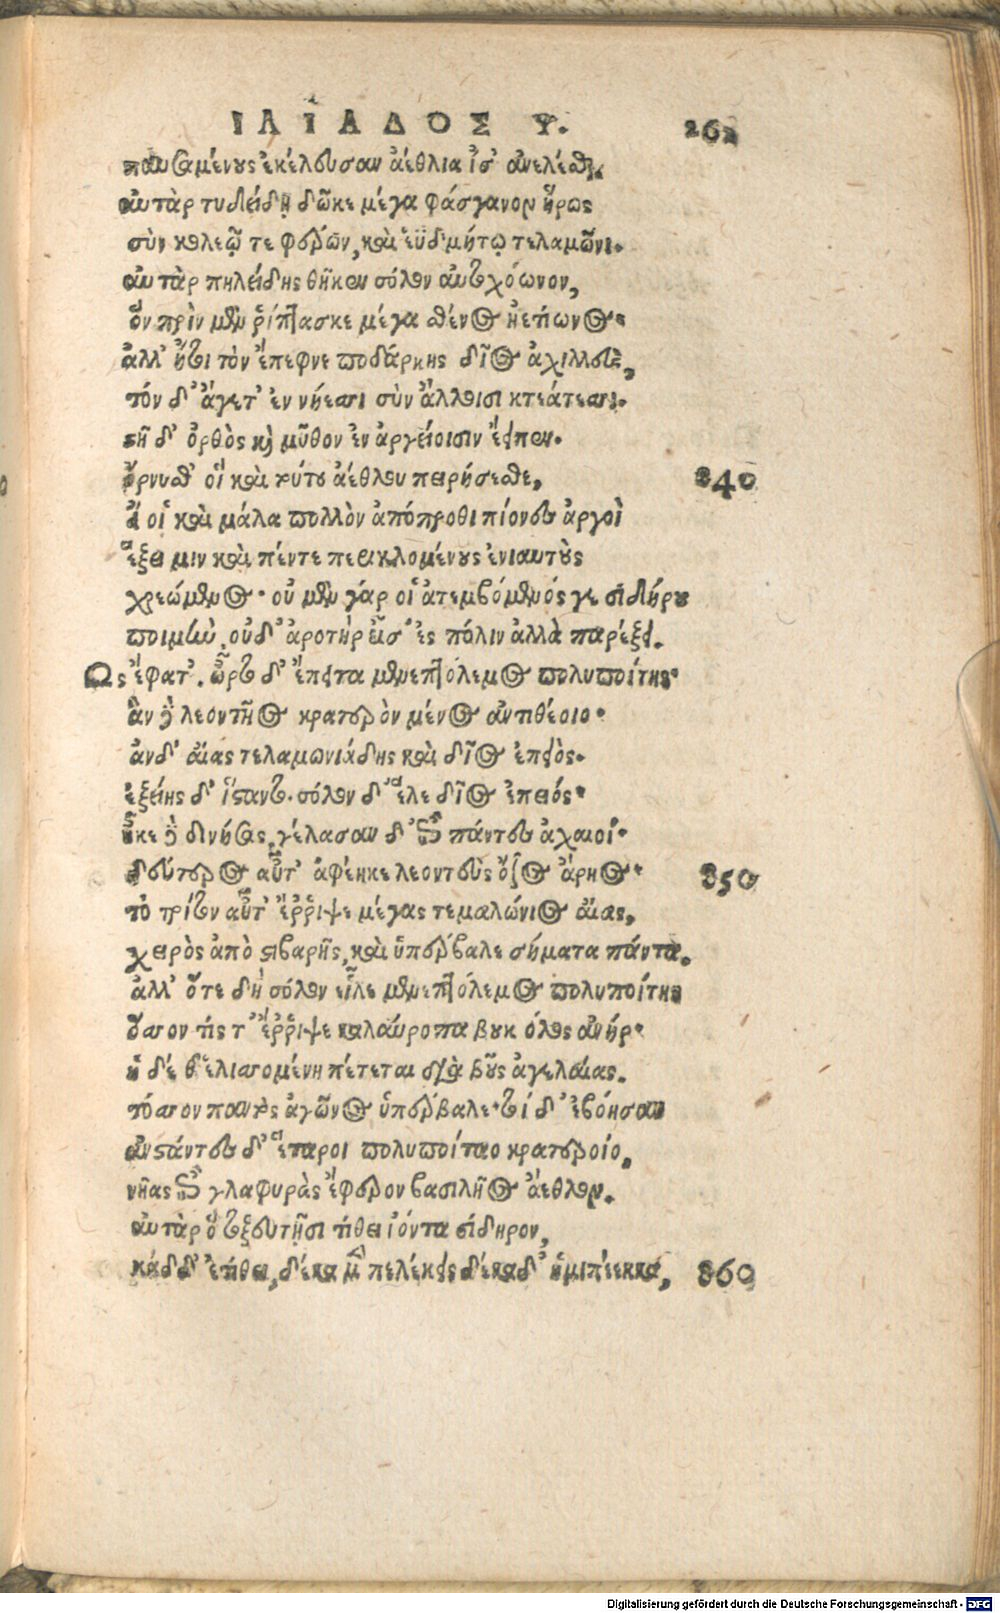 ΙΛΙΑΔΟΣ Ψ. 262
παυσαμένους ἐκέλευσαν ἀέθλια ἶσ' ἀνελέσθαι.
αὐτὰρ τυδείδῃ δῶκε μέγα φάσγανον ἥρως
σὺν κολεῷ τε φέρων, καὶ ἐϋδμήτῳ τελαμῶνι.
αὐτὰρ πηλείδης θῆκεν σόλον αὐτοχόωνον,
ὃν πρὶν μὲν ῥίπτασκε μέγα σθένος ἠετίωνος.
ἀλλ' ἤτοι τὸν ἔπεφνε ποδάρκης δῖος ἀχιλλεύς,
τόν δ' ἄγετ' ἐν νήεσσι σὺν ἄλλοισι κτεάτεσσι.
στῆ δ' ὀρθὸς καὶ μῦθον ἐν ἀργείοισιν ἔειπεν.
ὄρνυσθ' οἳ καὶ τούτου ἀέθλου πειρήσεσθε, 840
εἴ οἱ καὶ μάλα πολλὸν ἀπόπροθι πίονες ἀργοὶ
ἕξει μιν καὶ πέντε περιπλομένους ἐνιαυτοὺς
χρεώμενος. οὐ μὲν γάρ οἱ ἀτεμβόμενός γε σιδήρου
ποιμὴν, οὐδ' ἀροτὴρ εἶσ' ἐς πόλιν ἀλλὰ παρέξει.
Ὣς ἔφατ'. ὦρτο δ' ἔπειτα μενεπτόλεμος πολυποίτης.
ἂν δὲ λεοντῆος κρατερὸν μένος ἀντιθέοιο.
ἂν δ' αἴας τελαμωνιάδης καὶ δῖος ἐπειὸς.
ἑξείης δ' ἵσταντο. σόλον δ' ἕλε δῖος ἐπειός.
ἧκε δὲ δινήσας, γέλασαν δ' ἐπὶ πάντες ἀχαιοί.
δεύτερος αὖτ' ἀφέηκε λεοντεὺς ὄζος ἄρηος. 850
τὸ τρίτον αὖτ' ἔῤῥιψε μέγας τεμαλώνιος αἴας,
χειρὸς ἀπὸ στιβαρῆς, καὶ ὑπέρβαλε σήματα πάντα.
ἀλλ' ὅτε δὴ σόλον εἷλε μενεπτόλεμος πολυποίτης
ὅσσον τίς τ' ἔῤῥιψε καλαύροπα βουκόλος ἀνήρ.
ἡ δέ θ' ἑλισσομένη πέτεται διὰ βοῦς ἀγελαίας.
τόσσον παντὸς ἀγῶνος ὑπέρβαλε. τοὶ δ' ἐβόησαν
ἀνστάντες δ' ἕταροι πολυποίταο κρατεροίο,
νῆας ἐπὶ γλαφυρὰς ἔφερον βασιλῆος ἄεθλον.
αὐτὰρ ὃ τοξευτῇσι τίθει ἰόντα σίδηρον,
κάδ δ' ἐτίθει, δέκα μὲν πελέκεις δέκα δ' ἡμιπέλεκκα, 860
Digitalisierung gefördert durch die Deutsche Forschungsgemeinschaft - DFG